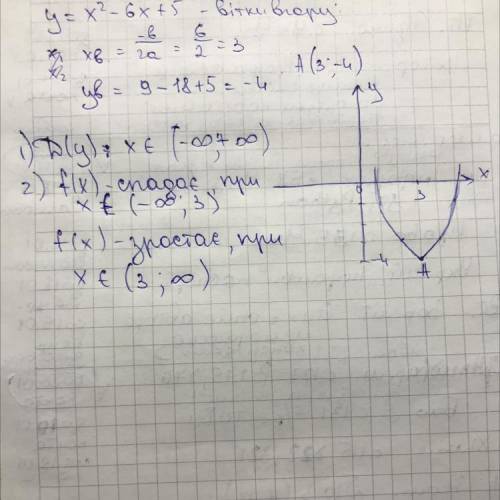 y = x² - 6x + 5 - вітки вгору
xв = -b/2a = 6/2 = 3
yв = 9 - 18 + 5 = -4
A (3; -4)
1) D(y): x ∈ (-∞, +∞)
2) f(x) - спадає, при
x ∈ (-∞; 3)
f(x) - зростає, при
x ∈ (3; ∞)
y
x
0
3
-4
A